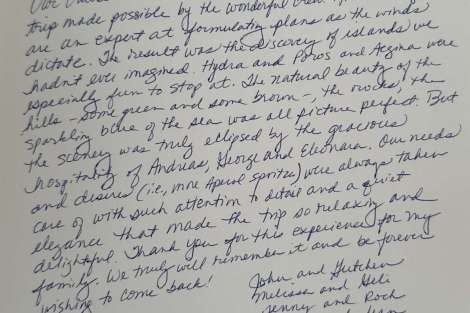 trip made possible by the wonderful
are an expert at formulating plans as the winds
dictate. The result was the discovery of islands we
hadn't ever imagined. Hydra and Poros and Aegina were
especially fun to stop at. The natural beauty of the
hills - some green and some brown -, the rocks, the
sparkling blue of the sea was all picture perfect. But
the scenery was truly eclipsed by the gracious
hospitality of Andreas, George and Eleonora. Our needs
and desires (i.e., more Aperol Spritzes) were always taken
care of with such attention to detail and a quiet
elegance that made the trip so relaxing and
delightful. Thank you for this experience for my
family. We truly will remember it and be forever
wishing to come back!
John and Gretchen
Melissa and
Jenny and Roch